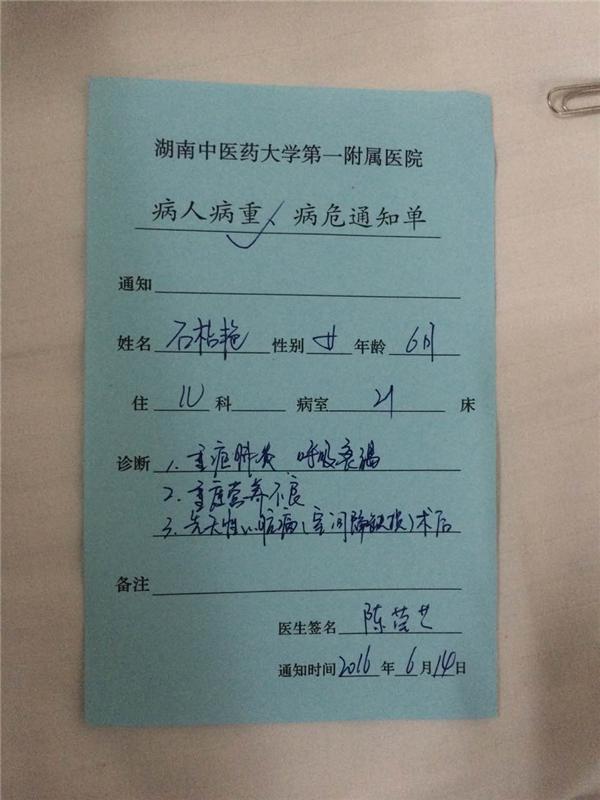 湖南中医药大学第一附属医院
病人病重、病危通知单
通知
姓名 石 艳 性别 女 年龄 6月
住 科 病室 21 床
诊断 1. 重症肺炎 呼吸衰竭
2. 重度营养不良
3. 先天性心脏病(室间隔缺损)术后
备注
医生签名 陈莹艺
通知时间 2016 年 6 月 14 日